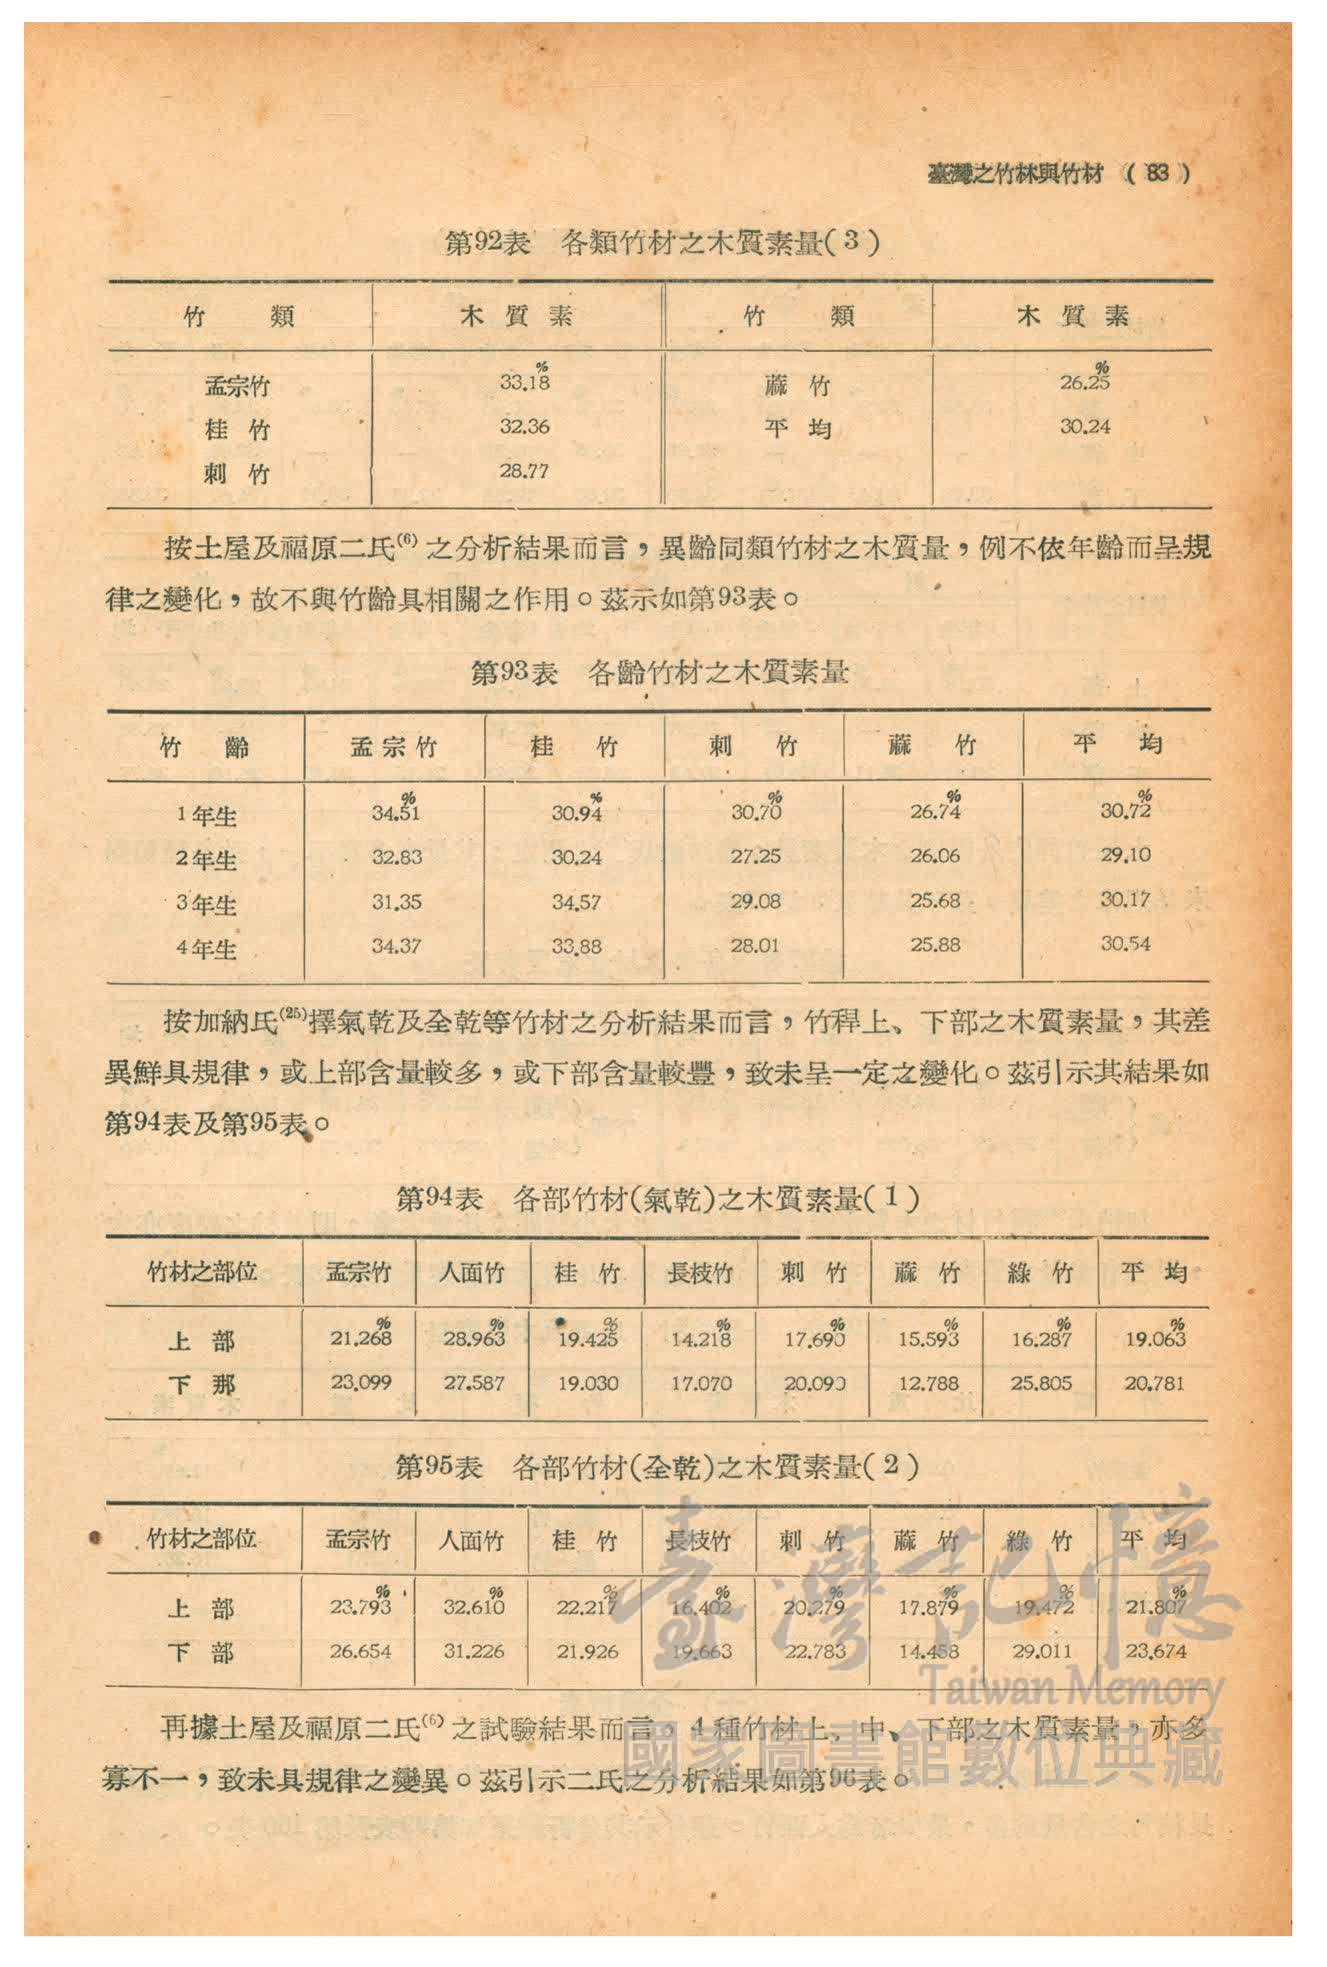 臺灣之竹林與竹材 (83)
第92表 各類竹材之木質素量(3)
竹 類 木 質 素 竹 類 木 質 素
孟宗竹 33.18% 蔴 竹 26.25%
桂 竹 32.36 平 均 30.24
刺 竹 28.77
按土屋及福原二氏(6)之分析結果而言，異齡同類竹材之木質量，例不依年齡而呈規
律之變化，故不與竹齡具相關之作用。茲示如第93表。
第93表 各齡竹材之木質素量
竹 齡 孟宗竹 桂 竹 刺 竹 蔴 竹 平 均
1年生 34.51% 30.94% 30.70% 26.74% 30.72%
2年生 32.83 30.24 27.25 26.06 29.10
3年生 31.35 34.57 29.08 25.68 30.17
4年生 34.37 33.88 28.01 25.88 30.54
按加納氏(25)擇氣乾及全乾等竹材之分析結果而言，竹稈上、下部之木質素量，其差
異鮮具規律，或上部含量較多，或下部含量較豐，致未呈一定之變化。茲引示其結果如
第94表及第95表。
第94表 各部竹材(氣乾)之木質素量(1)
竹材之部位 孟宗竹 人面竹 桂 竹 長枝竹 刺 竹 蔴 竹 綠 竹 平 均
上 部 21.268% 28.963% 19.425% 14.218% 17.690% 15.593% 16.287% 19.063%
下 那 23.099 27.587 19.030 17.070 20.090 12.788 25.805 20.781
第95表 各部竹材(全乾)之木質素量(2)
竹材之部位 孟宗竹 人面竹 桂 竹 長枝竹 刺 竹 蔴 竹 綠 竹 平 均
上 部 23.793% 32.610% 22.217% 16.402% 20.279% 17.879% 19.472% 21.807%
下 部 26.654 31.226 21.926 19.663 22.783 14.458 29.011 23.674
再據土屋及福原二氏(6)之試驗結果而言。4種竹材上、中、下部之木質素量，亦多
寡不一，致未具規律之變異。茲引示二氏之分析結果如第96表。
臺灣記憶
Taiwan Memory
國家圖書館數位典藏